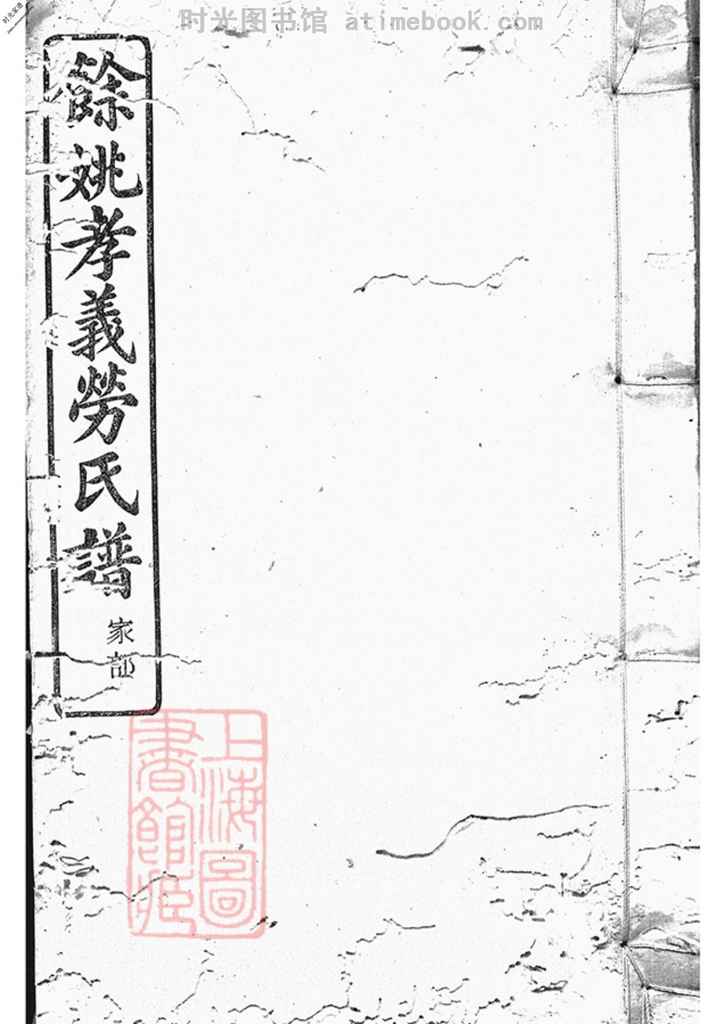 时光图书馆 atimebook.com
餘姚孝義勞氏譜
家部
上海圖
書館藏